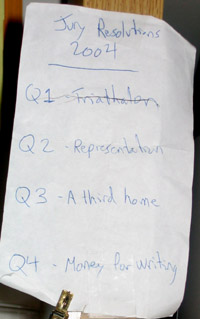 Jury Resolutions
2004
Q1 - Triathalon
Q2 - Representation
Q3 - A third home
Q4 - Money for writing